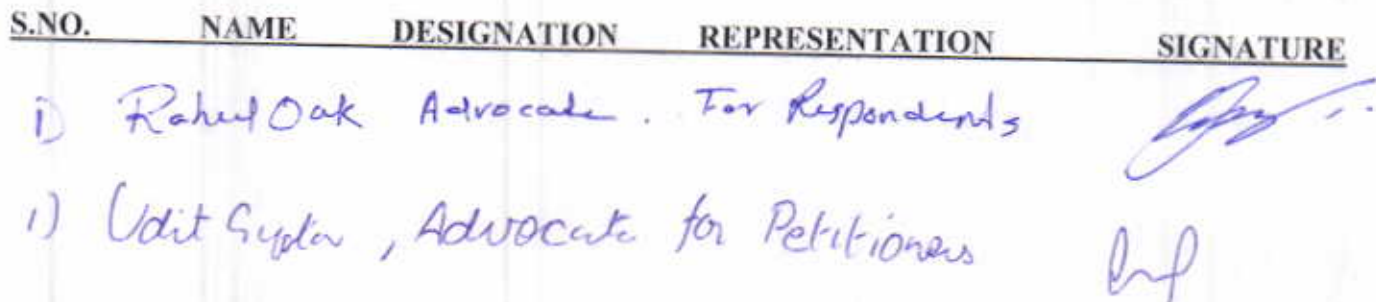 S.NO. NAME DESIGNATION REPRESENTATION SIGNATURE
1) Rahul Oak Advocate. For Respondents
1) Udit Gupta, Advocate for Petitioners